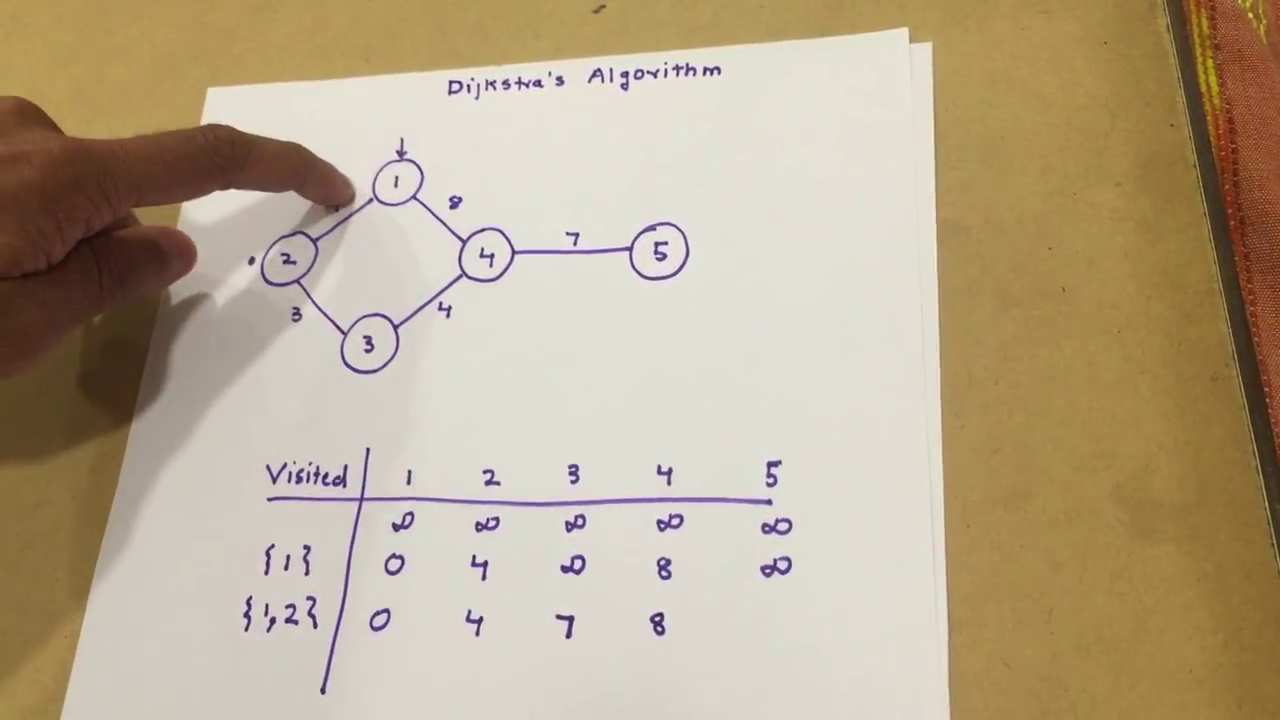 Dijkstra's Algorithm
1
8
2
4
7
5
3
4
3
Visited 1 2 3 4 5
∞ ∞ ∞ ∞ ∞
{1} 0 4 ∞ 8 ∞
{1,2} 0 4 7 8